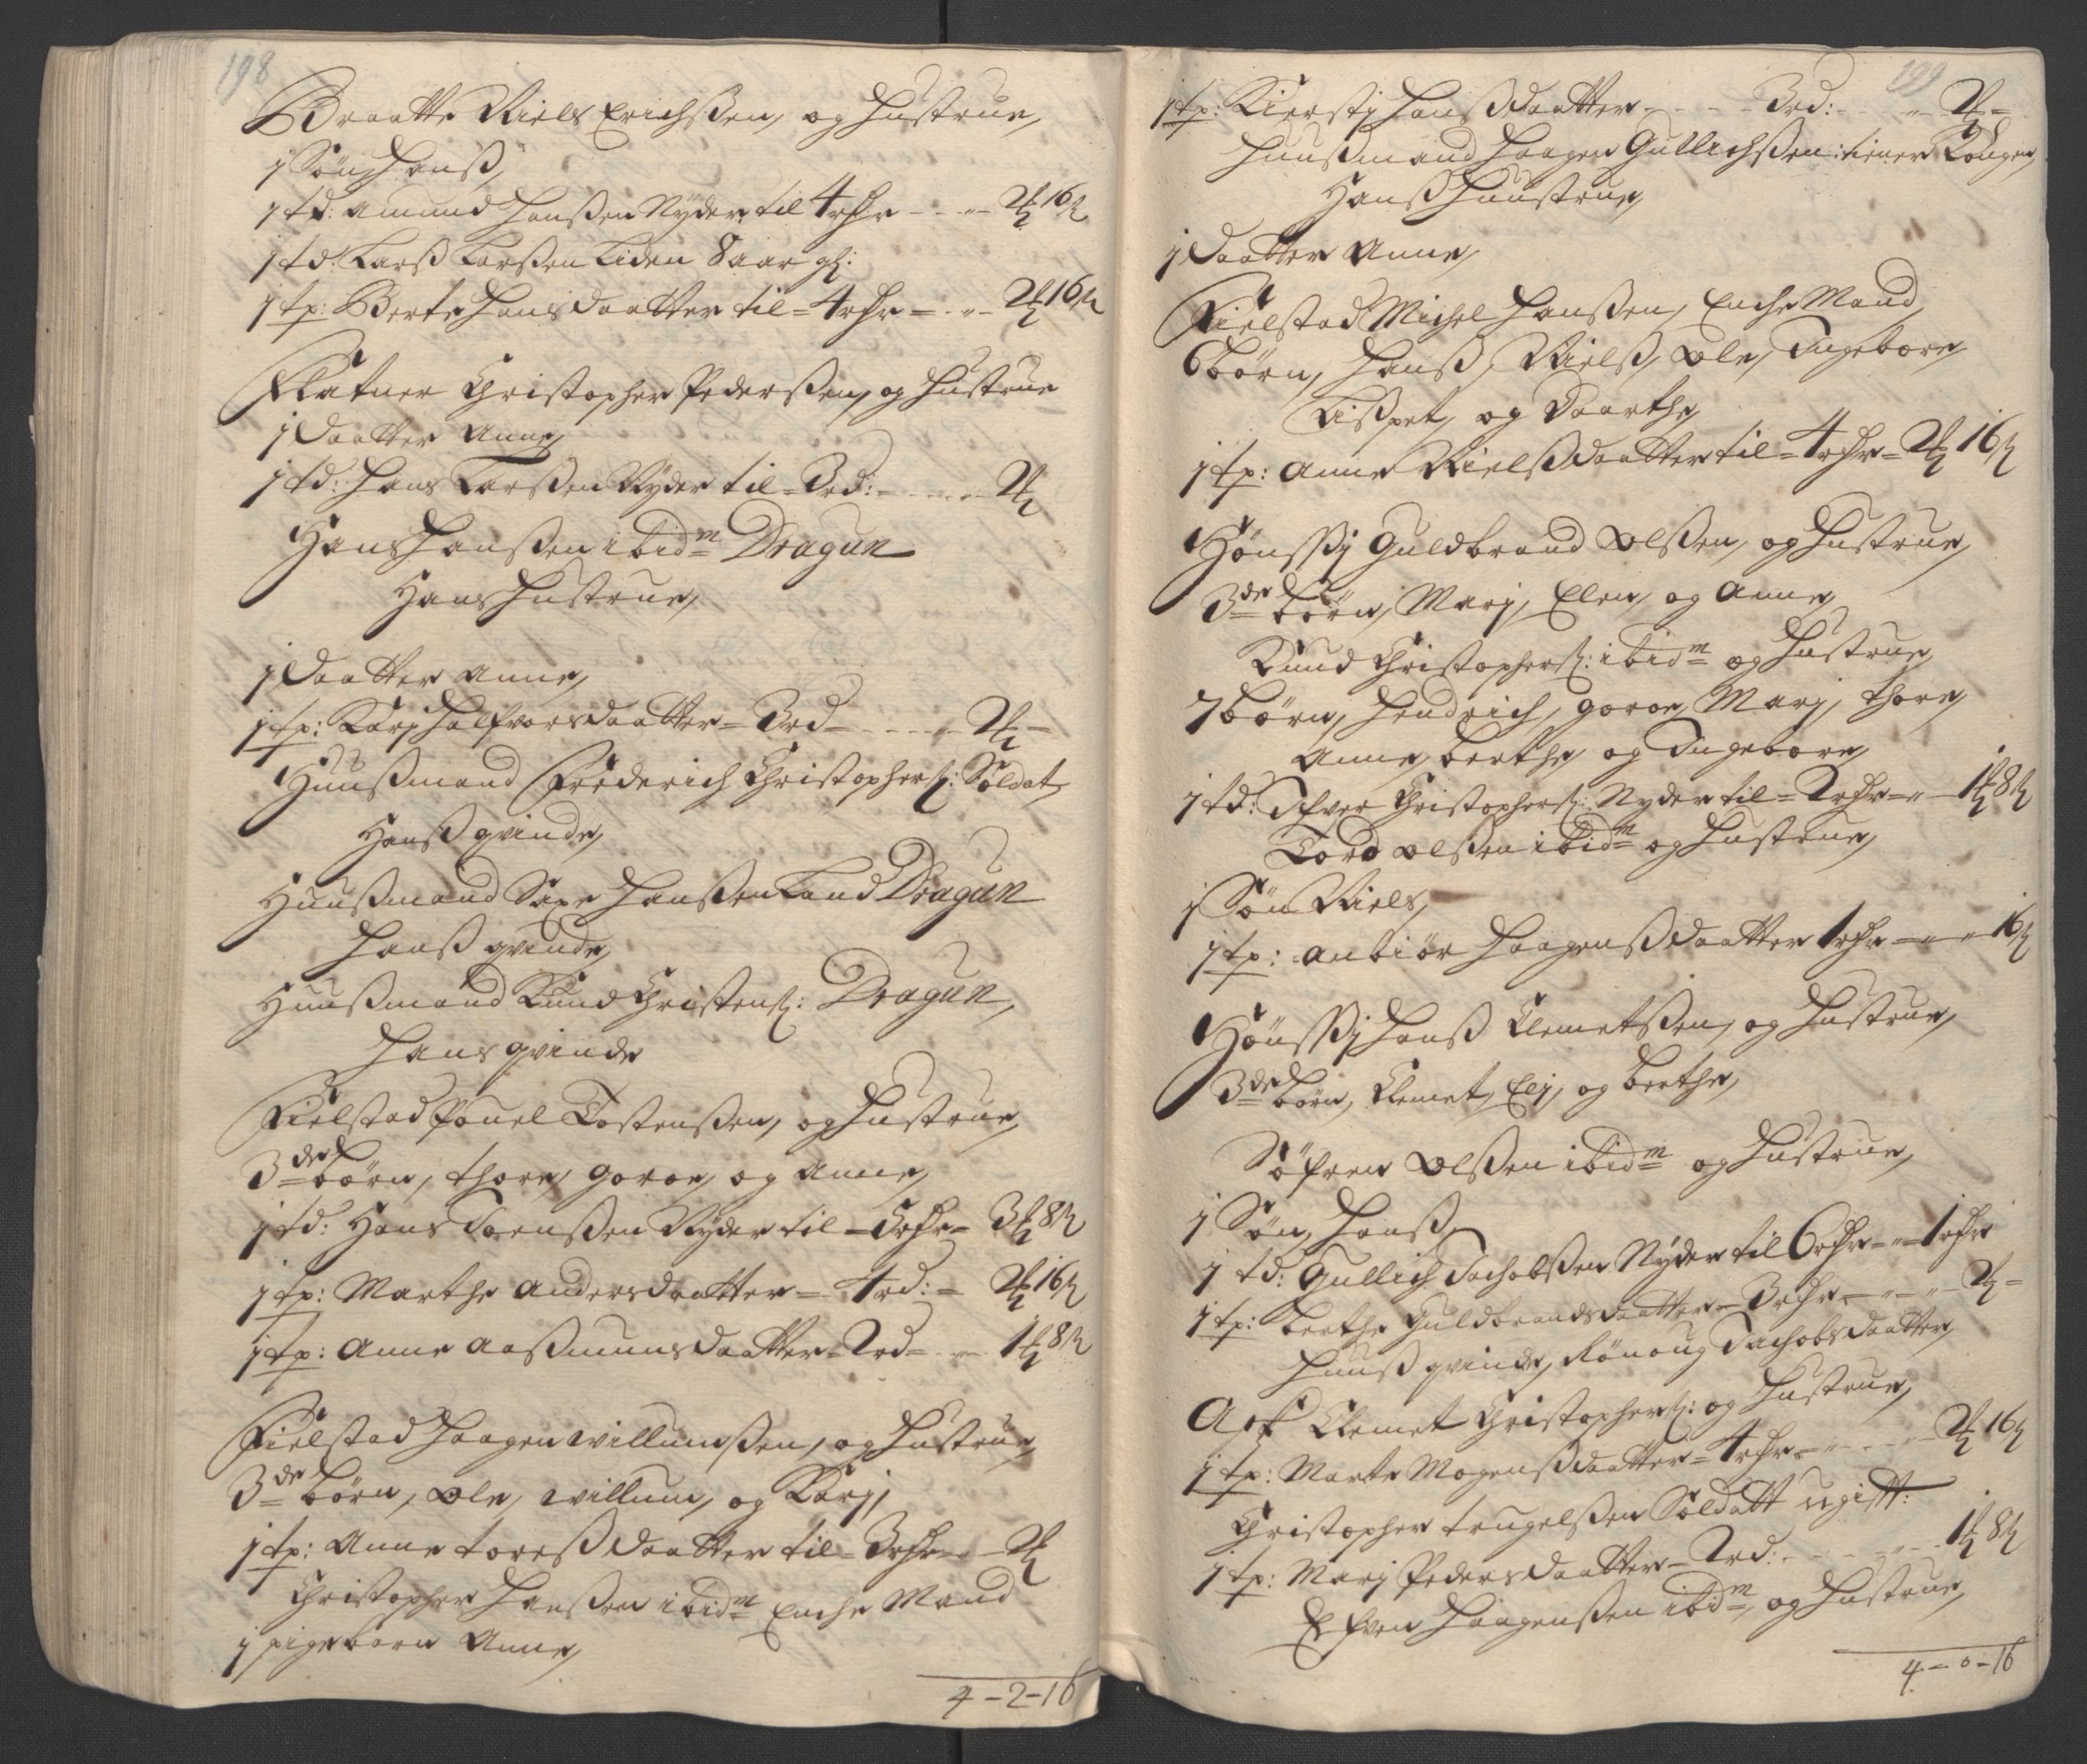 198
Braatte Niels Erichsßen, og Hustrue,
1 Søn Hanß,
1 td: Amund Hanßen Nyder til 4 rdr - - - 2 16
1 td: Larß Larßen Liden 8 aar gl:
1 tp: Berte Hansdaatter til = 4 rdr = - - 2 16
Flatner Christopher Pederßen, og Hustrue
1 Daatter Anne,
1 td: Hans Larßen Nyder til = 3 rd: - - - 2
Hans Hanßen ibidm Dragun
Hans Hustrue,
1 Daatter Anne,
1 tp: Karj Halfvorsdaatter = 3 rd - - - 2 -
Huußmand Frederich Christophers: Soldat
Hanß qvinde,
Huußmand Hanßen Land Dragun
Hanß qvinde,
Huußmand Knud Christens: Dragun,
Hans qvinde
Fielstad Pouel Tostensßen, og Hustrue,
3de børn, Thore, Goroe, og Anne,
1 td: Hans Nyder til = rdr = 3 8
1 tp: Marthe Andersdaatter = 4 rd: = 2 16
1 tp: Anne Aaßmunsdaatter = 2 rd = - - 1 8
Fielstad Haagen Willumsßen, og Hustrue
3de børn, Ole, Willum, og Karj,
1 tp: Anne Toreßdaatter til = 3 rdr - - 2
Christopher Hanßen ibidm Enche Mand
1 pigebarn Anne,
4 - 2 - 16
199
1 tp: Kierstj Hanßdaatter - - - 3 rd: - - 2 -
Huußmand Haagen Gullichsßen: tiener Kongen,
Hanß Huustrue,
1 Daatter Anne,
Fielstad Michel Hanßen, Enche Mand,
6 børn, Hanß, Nielß, Ole, Ingebore,
Lißpet, og Daarthe,
1 tp: Anne Nielßdaatter til = 4 rdr = 2 16
Hønßßj Guldbrand Olßen, og Hustrue,
3de børn, Marj, Elen, og Anne,
Knud Christophers: ibidm og Hustrue,
7 børn, Hendrich, Goroe, Marj, Thore,
Anne, Berthe, og Ingebore,
1 td: Ifver Christophers: Nyder til = 2 rdr = - 1 8
Tord Olßen ibidm og Hustrue,
1 Søn Niels,
1 tp: Anbiør Haagenßdaatter 1 rdr - - - 16
Hønßßj Hanß Clemetsßen, og Hustrue,
3de børn, Clemet, Elj, og Berthe,
Søfren Olßen ibidm og Hustrue,
1 Søn, Hanß
1 td: Gullich Jachobsßen Nyder til 6 rdr - - 1 rdr
1 tp: Berthe Guldbrandsdaatter = 3 rdr - - - 2 -
Huuß qvinde, Rønoug Jachobsdaatter,
Clemet Christophers: og Hustrue,
1 tp: Marte Mogenßdaatter = 4 rdr - - - 2 16
Christopher Trugelsßen Soldatt ugift:
1 tp: Marj Pedersdaatter = 2 rd: - - - 1 8
Efven Haagenßen ibidm, og Hustrue,
4 - 0 - 16